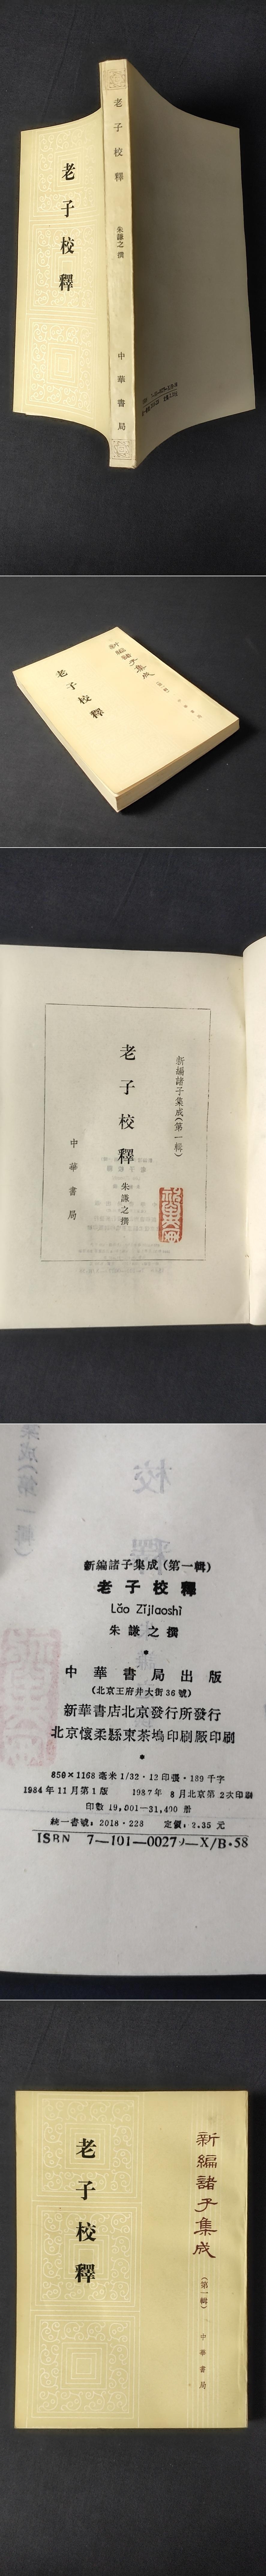 老子校釋
老子校釋
朱謙之撰
中華書局
新編諸子集成
老子校釋
新編諸子集成(第一輯)
老子校釋
朱謙之撰
中華書局
新編諸子集成(第一輯)
老子校釋
Lǎo Zǐjiàoshì
朱謙之撰
中華書局出版
(北京王府井大街36號)
新華書店北京發行所發行
北京懷柔縣東茶塢印刷厰印刷
850×1168毫米1/32·12印張·189千字
1984年11月第1版 1987年8月北京第2次印刷
印數19,001—31,400册
統一書號:2018·228 定價:2.35元
ISBN 7—101—0027
X/B·58
新編諸子集成
(第一輯)
中華書局
老子校釋